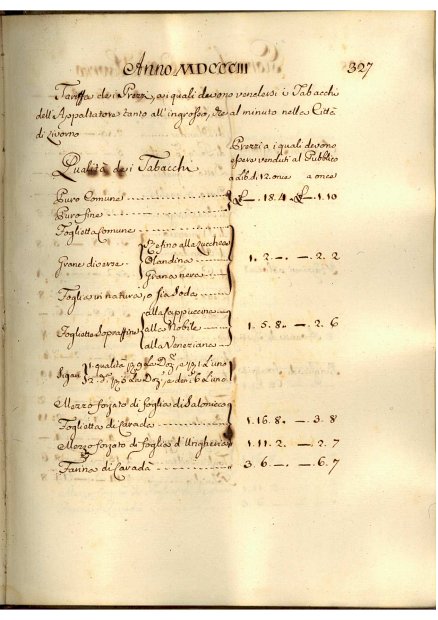 Anno MDCCCIII 327
Tariffa dei Prezzi, a i quali devono vendersi i Tabacchi
dell'Appaltatore tanto all'ingrosso, che al minuto nella Città
di Livorno
Qualità dei Tabacchi
Prezzi a i quali devono
essere venduti al Pubblico
a Lib. d. 12. once a once
Puro Comune
Puro fine
£ —. 18. 4 £ —. 1. 10
Foglietta Comune
Grane diverse
Refino alla Zucchera
Olandina
Grana nera
1. 2. —. —. 2. 2
Foglia in natura, o sia Soda
Foglietta Sopraffine
alla Cappuccina
alla Nobile
alla Veneziana
1. 5. 8. —. 2. 6
Sigari
Mezzo forzato di foglia di Salonicco
Foglietta di Cavada
1. 16. 8. —. 3. 8
Mezzo forzato di foglia d'Ungheria
1. 11. 2. —. 2. 7
Farina di Cavadà
3. 6. —. —. 6. 7